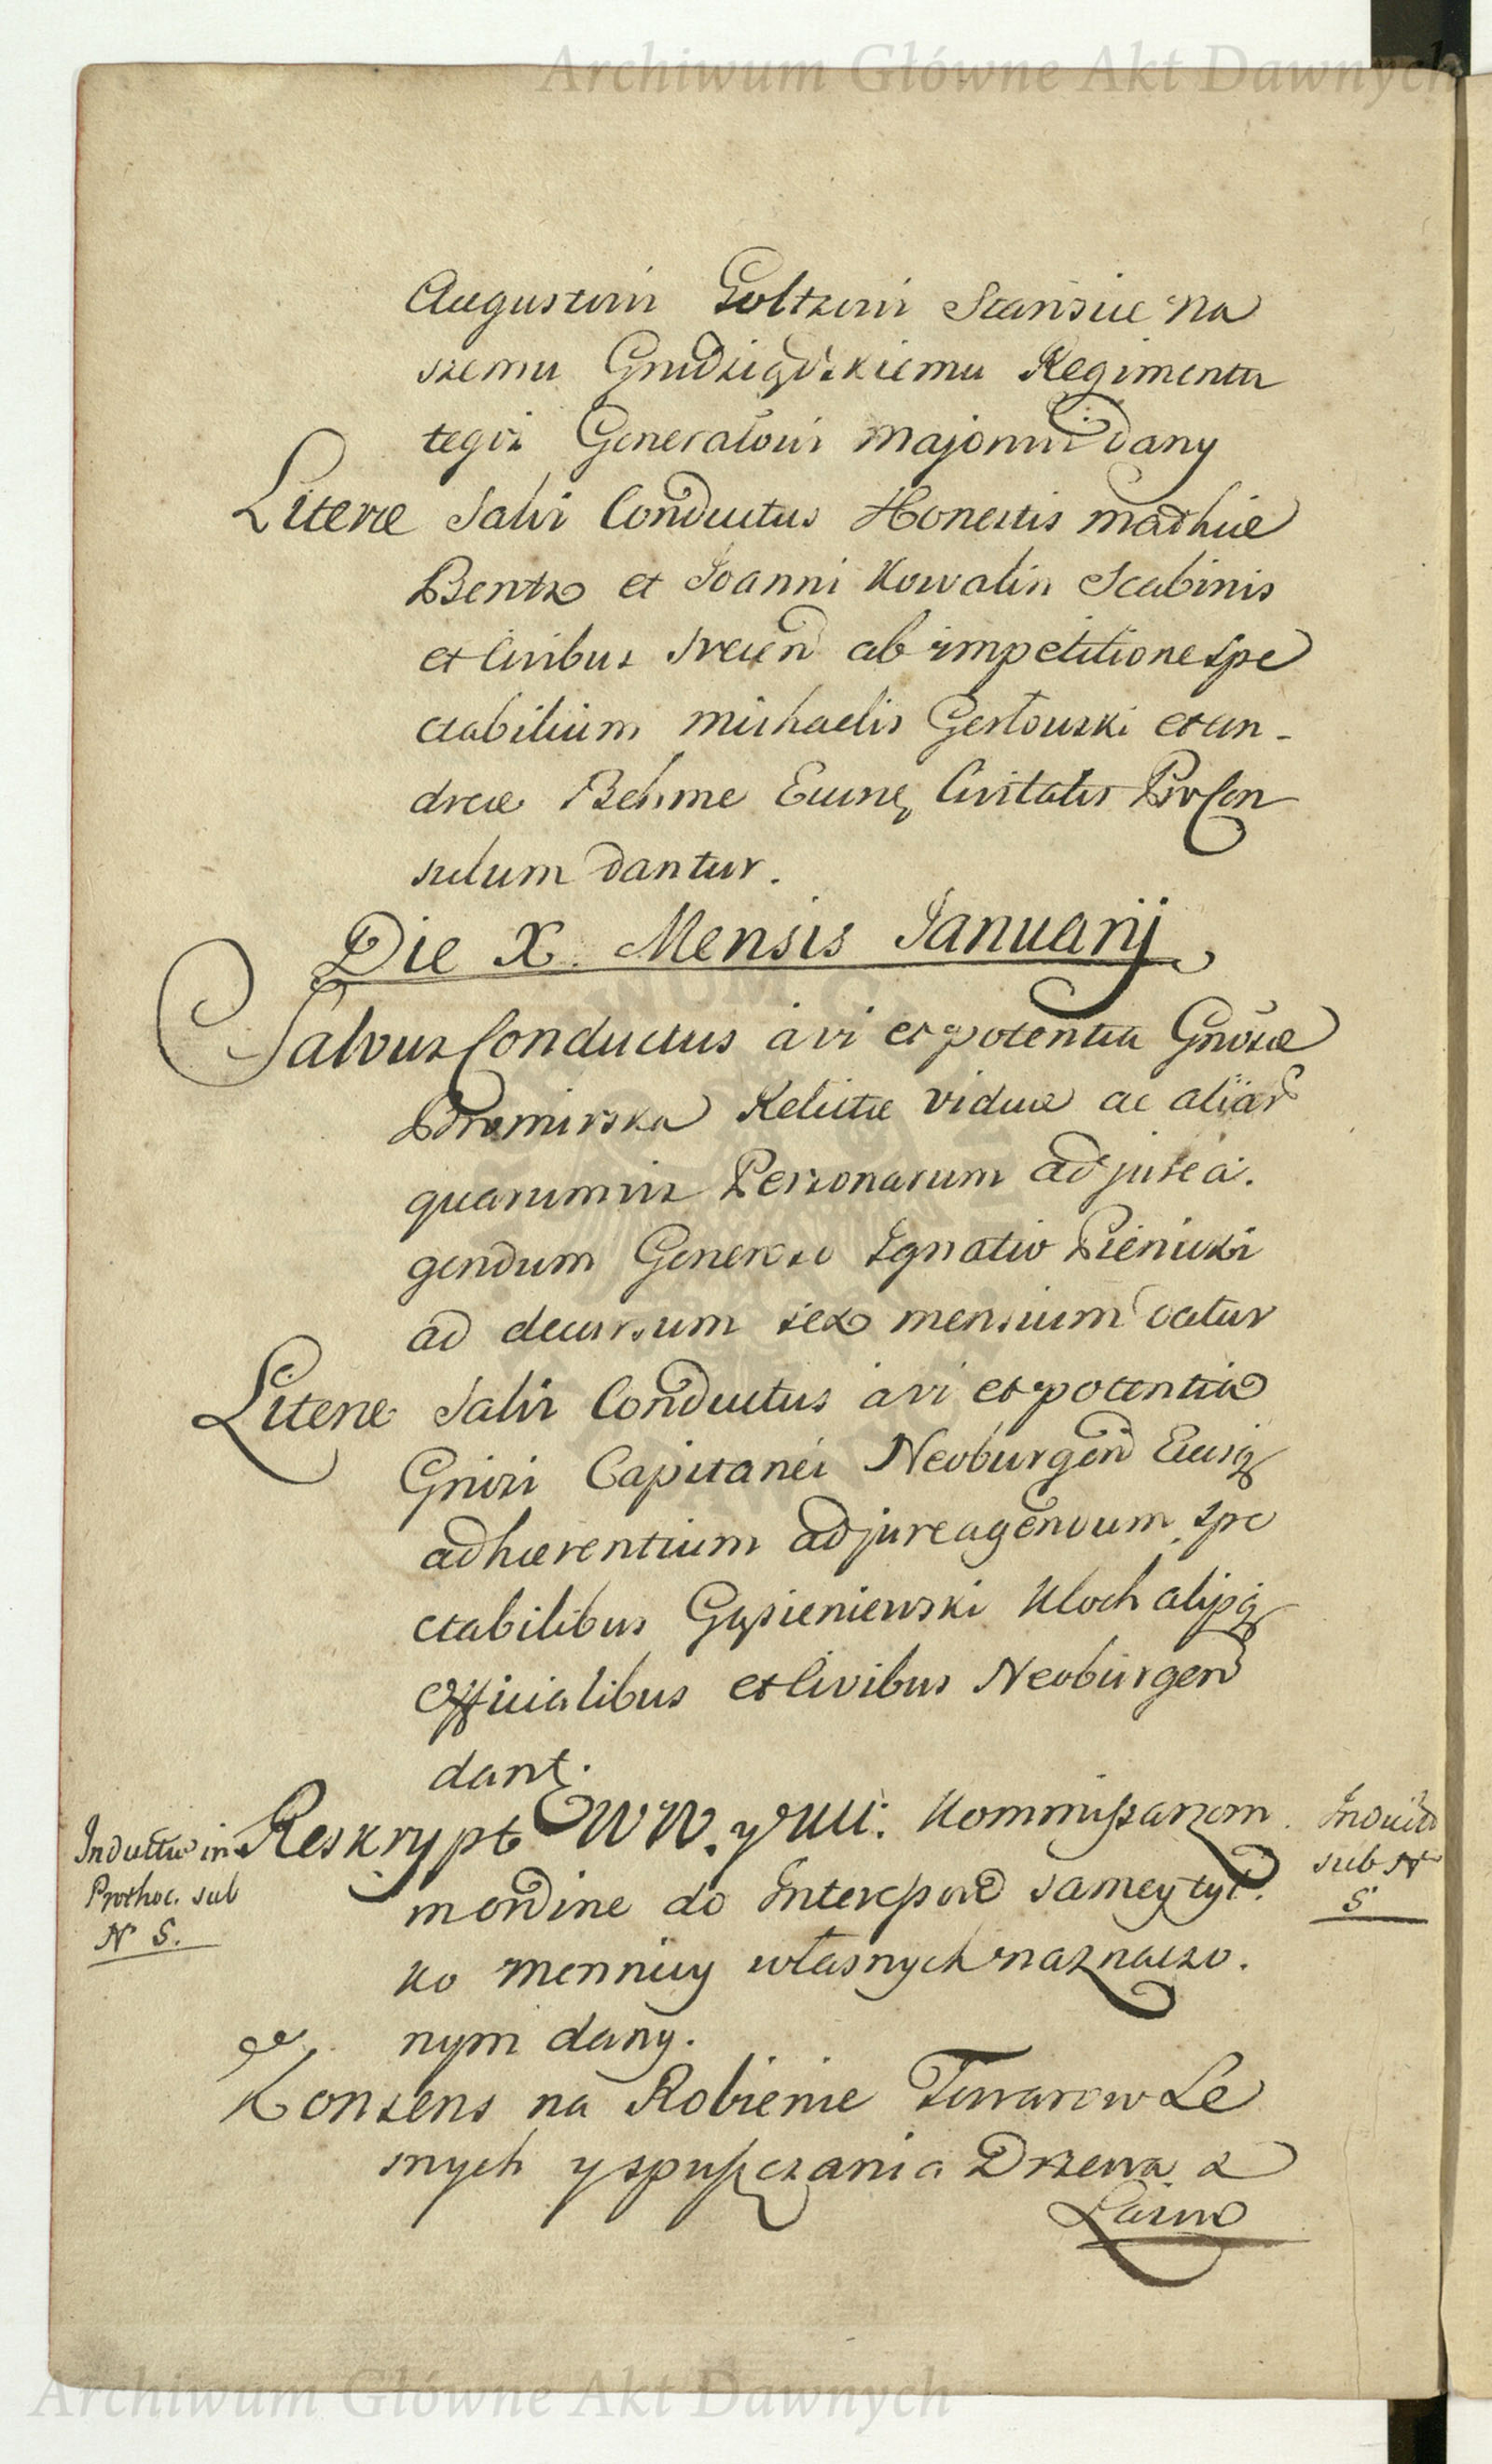 Archiwum Główne Akt Dawnych
Augustowi Goltzowi Starośie na
szemu Grudziąḋzkiemu Regimentu
tegoż Generałowi Majorowi dany
Literæ Salvi Conductus Honestis Mathiæ
Bentz et Joanni Kowalin Scabinis
et Civibus Svecen ab impetitione Spe
ctabilium Michaelis Gerłowski et An-
dreæ Behme Euines Civitatis ProCon
sulum dantur.
Die X. Mensis Januarij
Salvus Conductus a vi et potentia Gnosæ
Bromirska Relictæ viduæ ac aliar
quarumvis Personarum ad jure a.
gendum Generoso Ignatio Pienicki
ad decursum sex mensium datur
Literæ Salvi Conductus a vi et potentia
Gnosi Capitanei Neoburgen Eiusq
adhærentium ad jure agendum spe
ctabilibus Gąsieniewski Kloch alijsq
officialibus et Civibus Neoburgen
dant.
Inducta in
Prothoc. sub
N 5.
Reskrypt WW. y UU. Kommissarzom
in ordine do samey tyl.
ko mennicy własnych naznaczo.
nym dany.
sub N
5
Konsens na Robienie Towarow Le
snych y spuszczania Drzewa z
Archiwum Główne Akt Dawnych